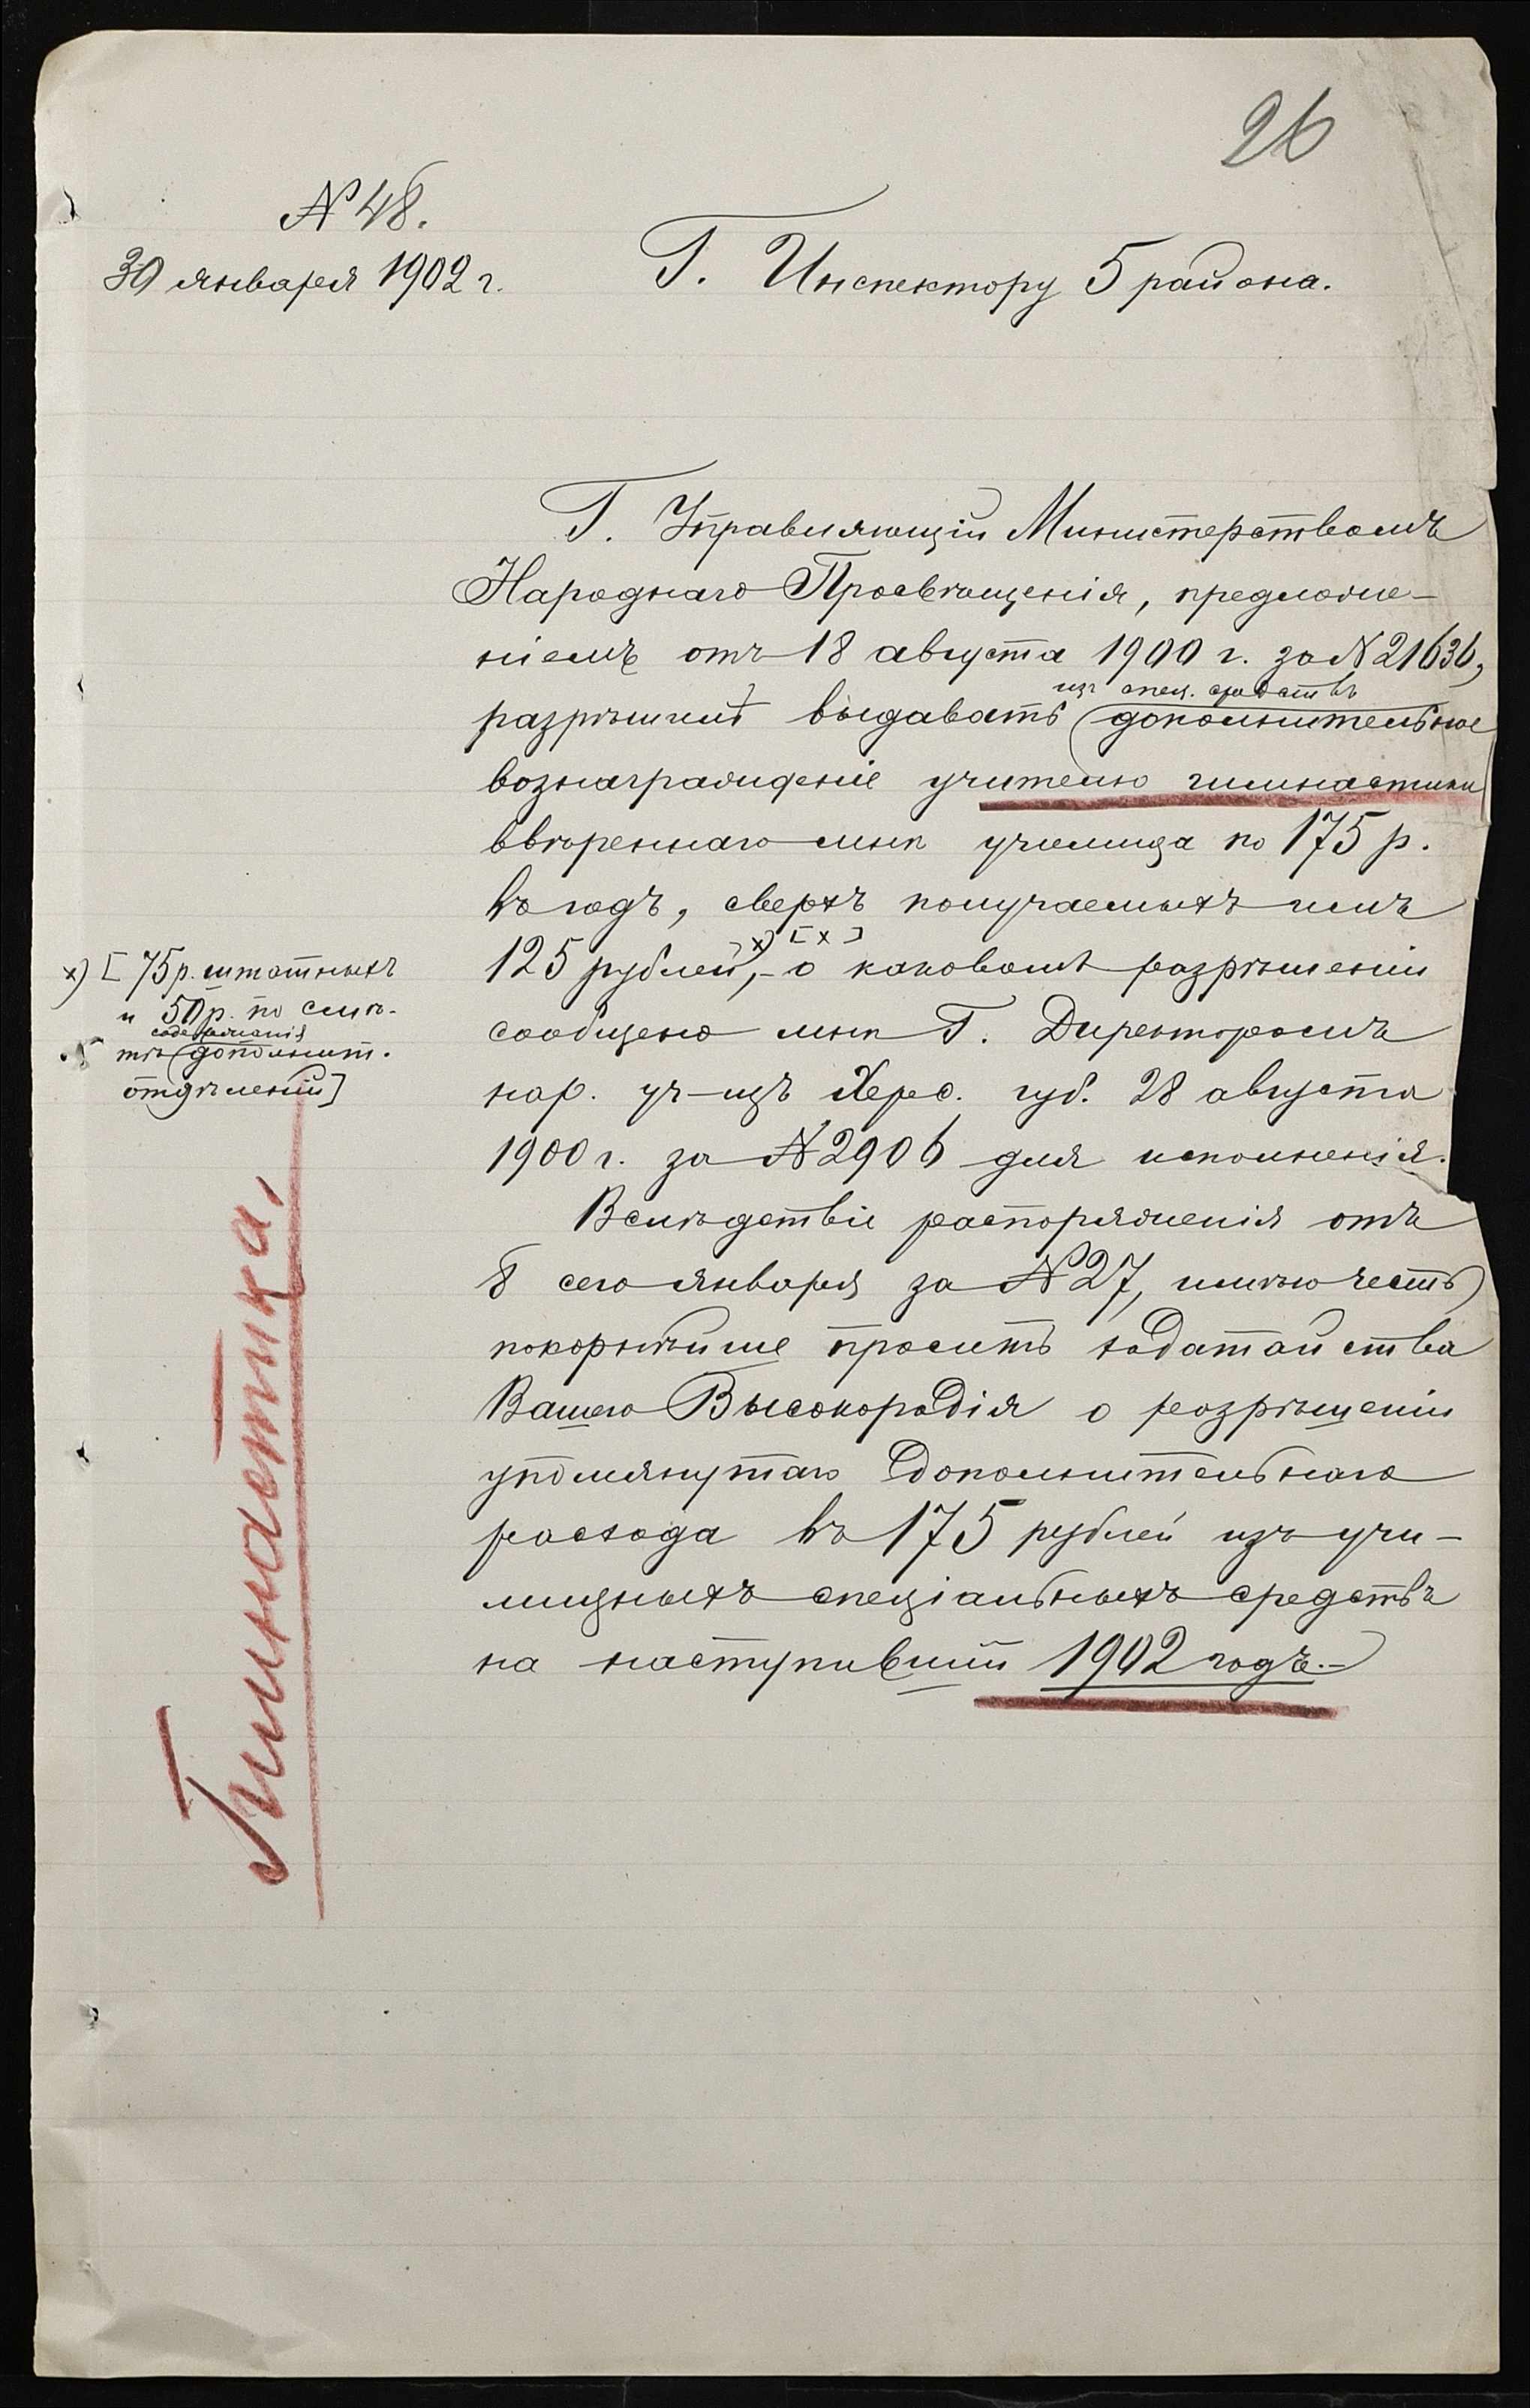 26
№ 48.
30 января 1902 г.
Г. Инспектору 5 района.
Г. Управляющій Министерствомъ
Народнаго Просвѣщенія, предложе-
ніемъ отъ 18 августа 1900 г. за № 21636,
изъ спец. средствъ
разрѣшилъ выдавать дополнительное
вознагражденіе учителю гимнастики
ввѣреннаго мнѣ училища по 175 р.
въ годъ, сверхъ получаемыхъ имъ
125 рублей, x) [x] - о каковомъ разрѣшеніи
сообщено мнѣ Г. Директоромъ
нар. уч-щъ Херс. губ. 28 августа
1900 г. за № 2906 для исполненія.
x) [75 р. штатныхъ
и 50 р. по смѣ-
содержанія
тѣ дополнит.
отдѣленій]
Вслѣдствіе распоряженія отъ
8 сего января за № 27, имѣю честь
покорнѣйше просить ходатайства
Вашего Высокородія о разрѣшеніи
упомянутаго дополнительнаго
расхода въ 175 рублей изъ учи-
лищныхъ спеціальныхъ средствъ
на наступившій 1902 годъ.-
Гимнастика.